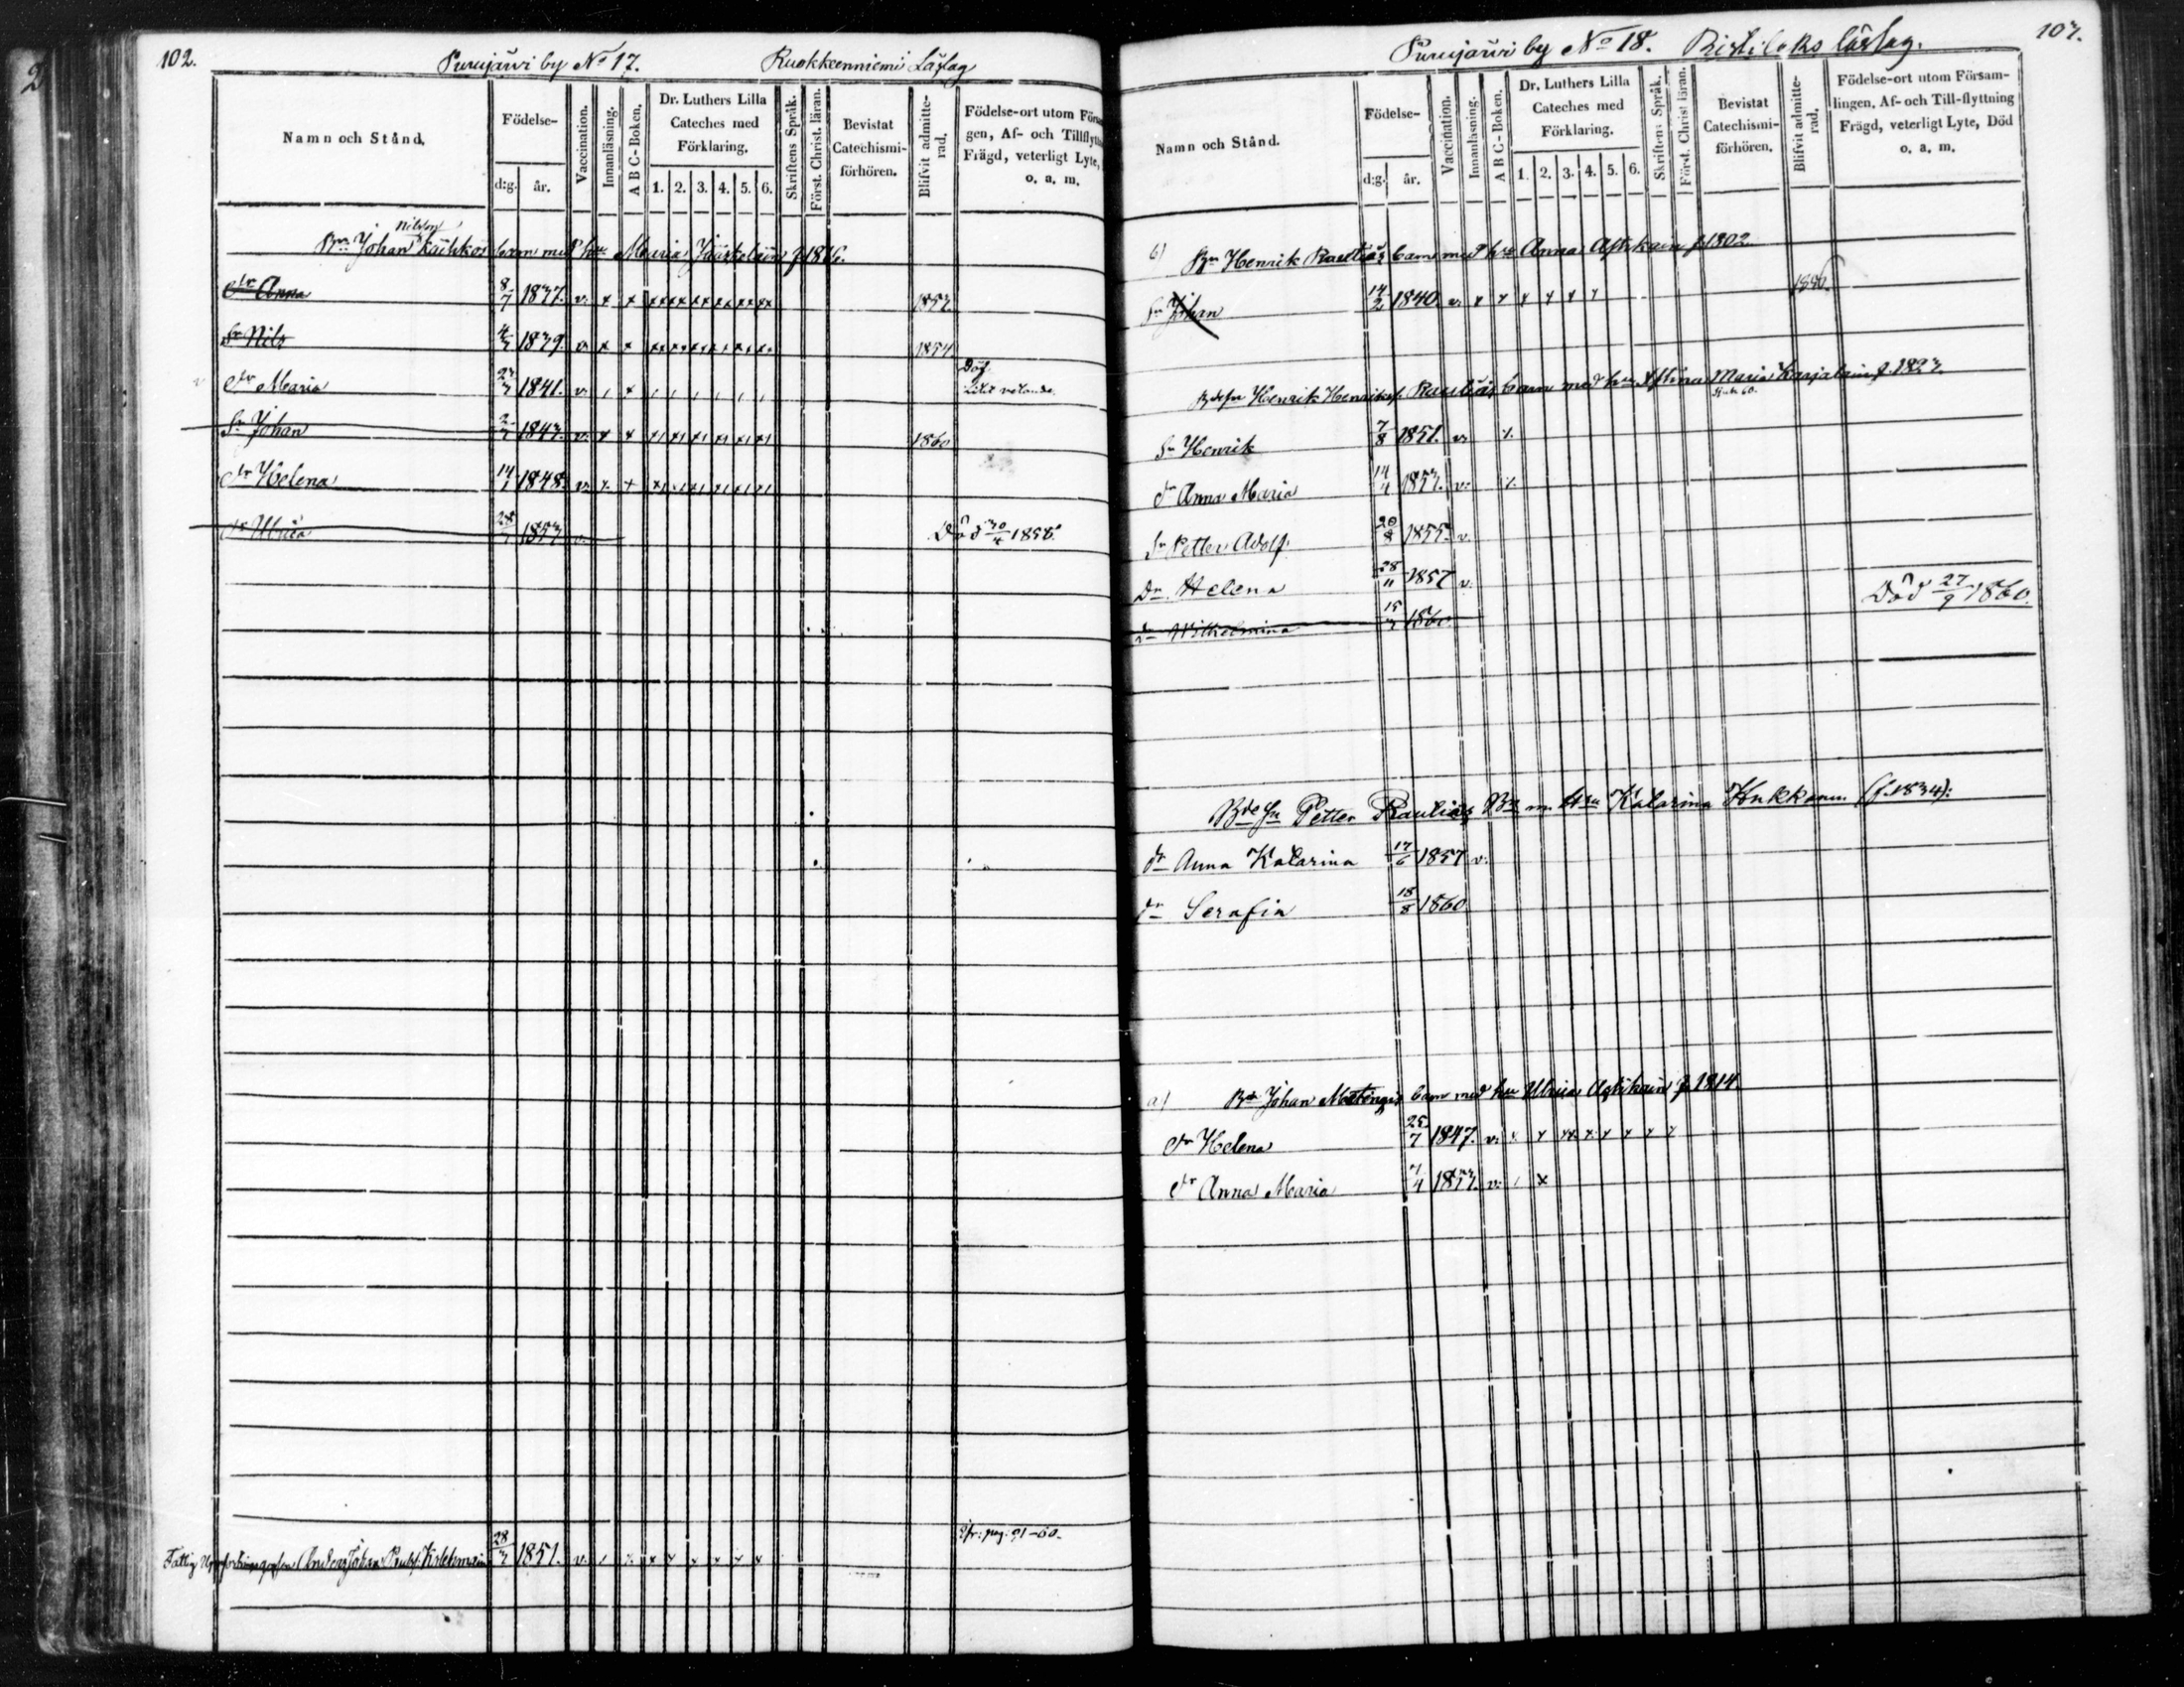 102.
Purujärvi by No 17. Ruokkeenniemi Läslag
Namn och Stånd.
Födelse-
d:g. år.
Vaccination.
Innanläsning.
A B C-Boken.
Dr. Luthers Lilla
Cateches med
Förklaring.
1. 2. 3. 4. 5. 6.
Skriftens Språk.
Först. Christ. läran.
Bevistat
Catechismi-
förhören.
Blifvit admitte-
rad.
Födelse-ort utom Försam
gen, Af- och Tillflyttn
Frägd, veterligt Lyte,
o. a. m.
Nilsson
Bn Johan Käihkös barn med hu Maria Jääskeläin f. 1816.
dr Anna 8/7 1837. v. x x xx xx xx xx xx xx 1853.
Sn Nils 4/7 1839. v. x x 1854
Döf
dr Maria 1841. v. , x , , , , , , Litet vetande.
Sn Johan 1843. v. x x x1 x1 x1 x1 x1 x1 1860
dr Helena 14/1 1848. v. x. + x1 x1 x1 x1 x1 x1
dr Ulrica 1853 v. Död 30/4 1858.
Tfr: pag. 91-60.
Fattig Anders Johan Paulss. 28/3 1851. v. , x. x x x x x x
103.
Purujärvi by No 18. Ristilaks läslag.
Namn och Stånd.
Födelse-
d:g. år.
Vaccination.
Innanläsning.
A B C-Boken.
Dr. Luthers Lilla
Cateches med
Förklaring.
1. 2. 3. 4. 5. 6.
Skriftens Språk.
Först. Christ läran.
Bevistat
Catechismi-
förhören.
Blifvit admitte-
rad,
Födelse-ort utom Försam-
lingen, Af- och Till-flyttning
Frägd, veterligt Lyte, Död
o. a. m.
b) Bn Henrik Rautiäs barn med hu Anna Astikain f. 1802.
Sn Johan 14/2 1840. v. x x x x x x
Bdesn Henrik Henrikss. Rautiäs barn med hu Maria Karjalain f. 1823.
Sn Henrik 7/8 1851. v. x.
dr Anna Maria 14/4 1853. v. x.
Sn Petter Adolf. 20/8 1855. v.
Dr. Helena 28/11 1857 v.
dr Wilhelmina 1860. Död 27/9 1860.
Bdesn Petter Rautiäs Bn m. Hu Katarina Kukkonen (f. 1834):
dr Anna Katarina 17/6 1857 v.
dr Serafia 18/8 1860
a) Bn Johan barn med hu Ulrica Astikain f. 1814.
dr Helena 25/7 1847. v. x. x xx. x. x x x x
dr Anna Maria 1853. v. , x